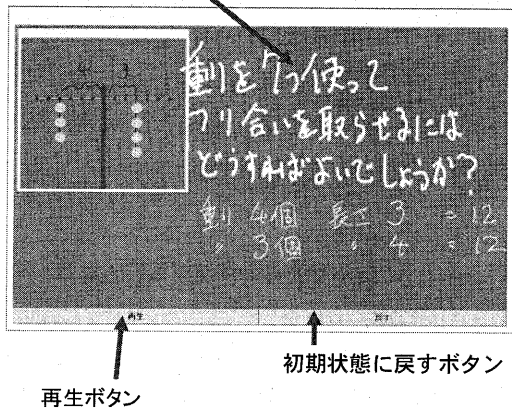 4 3
重りを7つ使って
つり合いを取らせるには
どうすればよいでしょうか?
重り 4個 長さ 3 = 12
〃 3個 〃 4 = 12
再生 戻す
初期状態に戻すボタン
再生ボタン